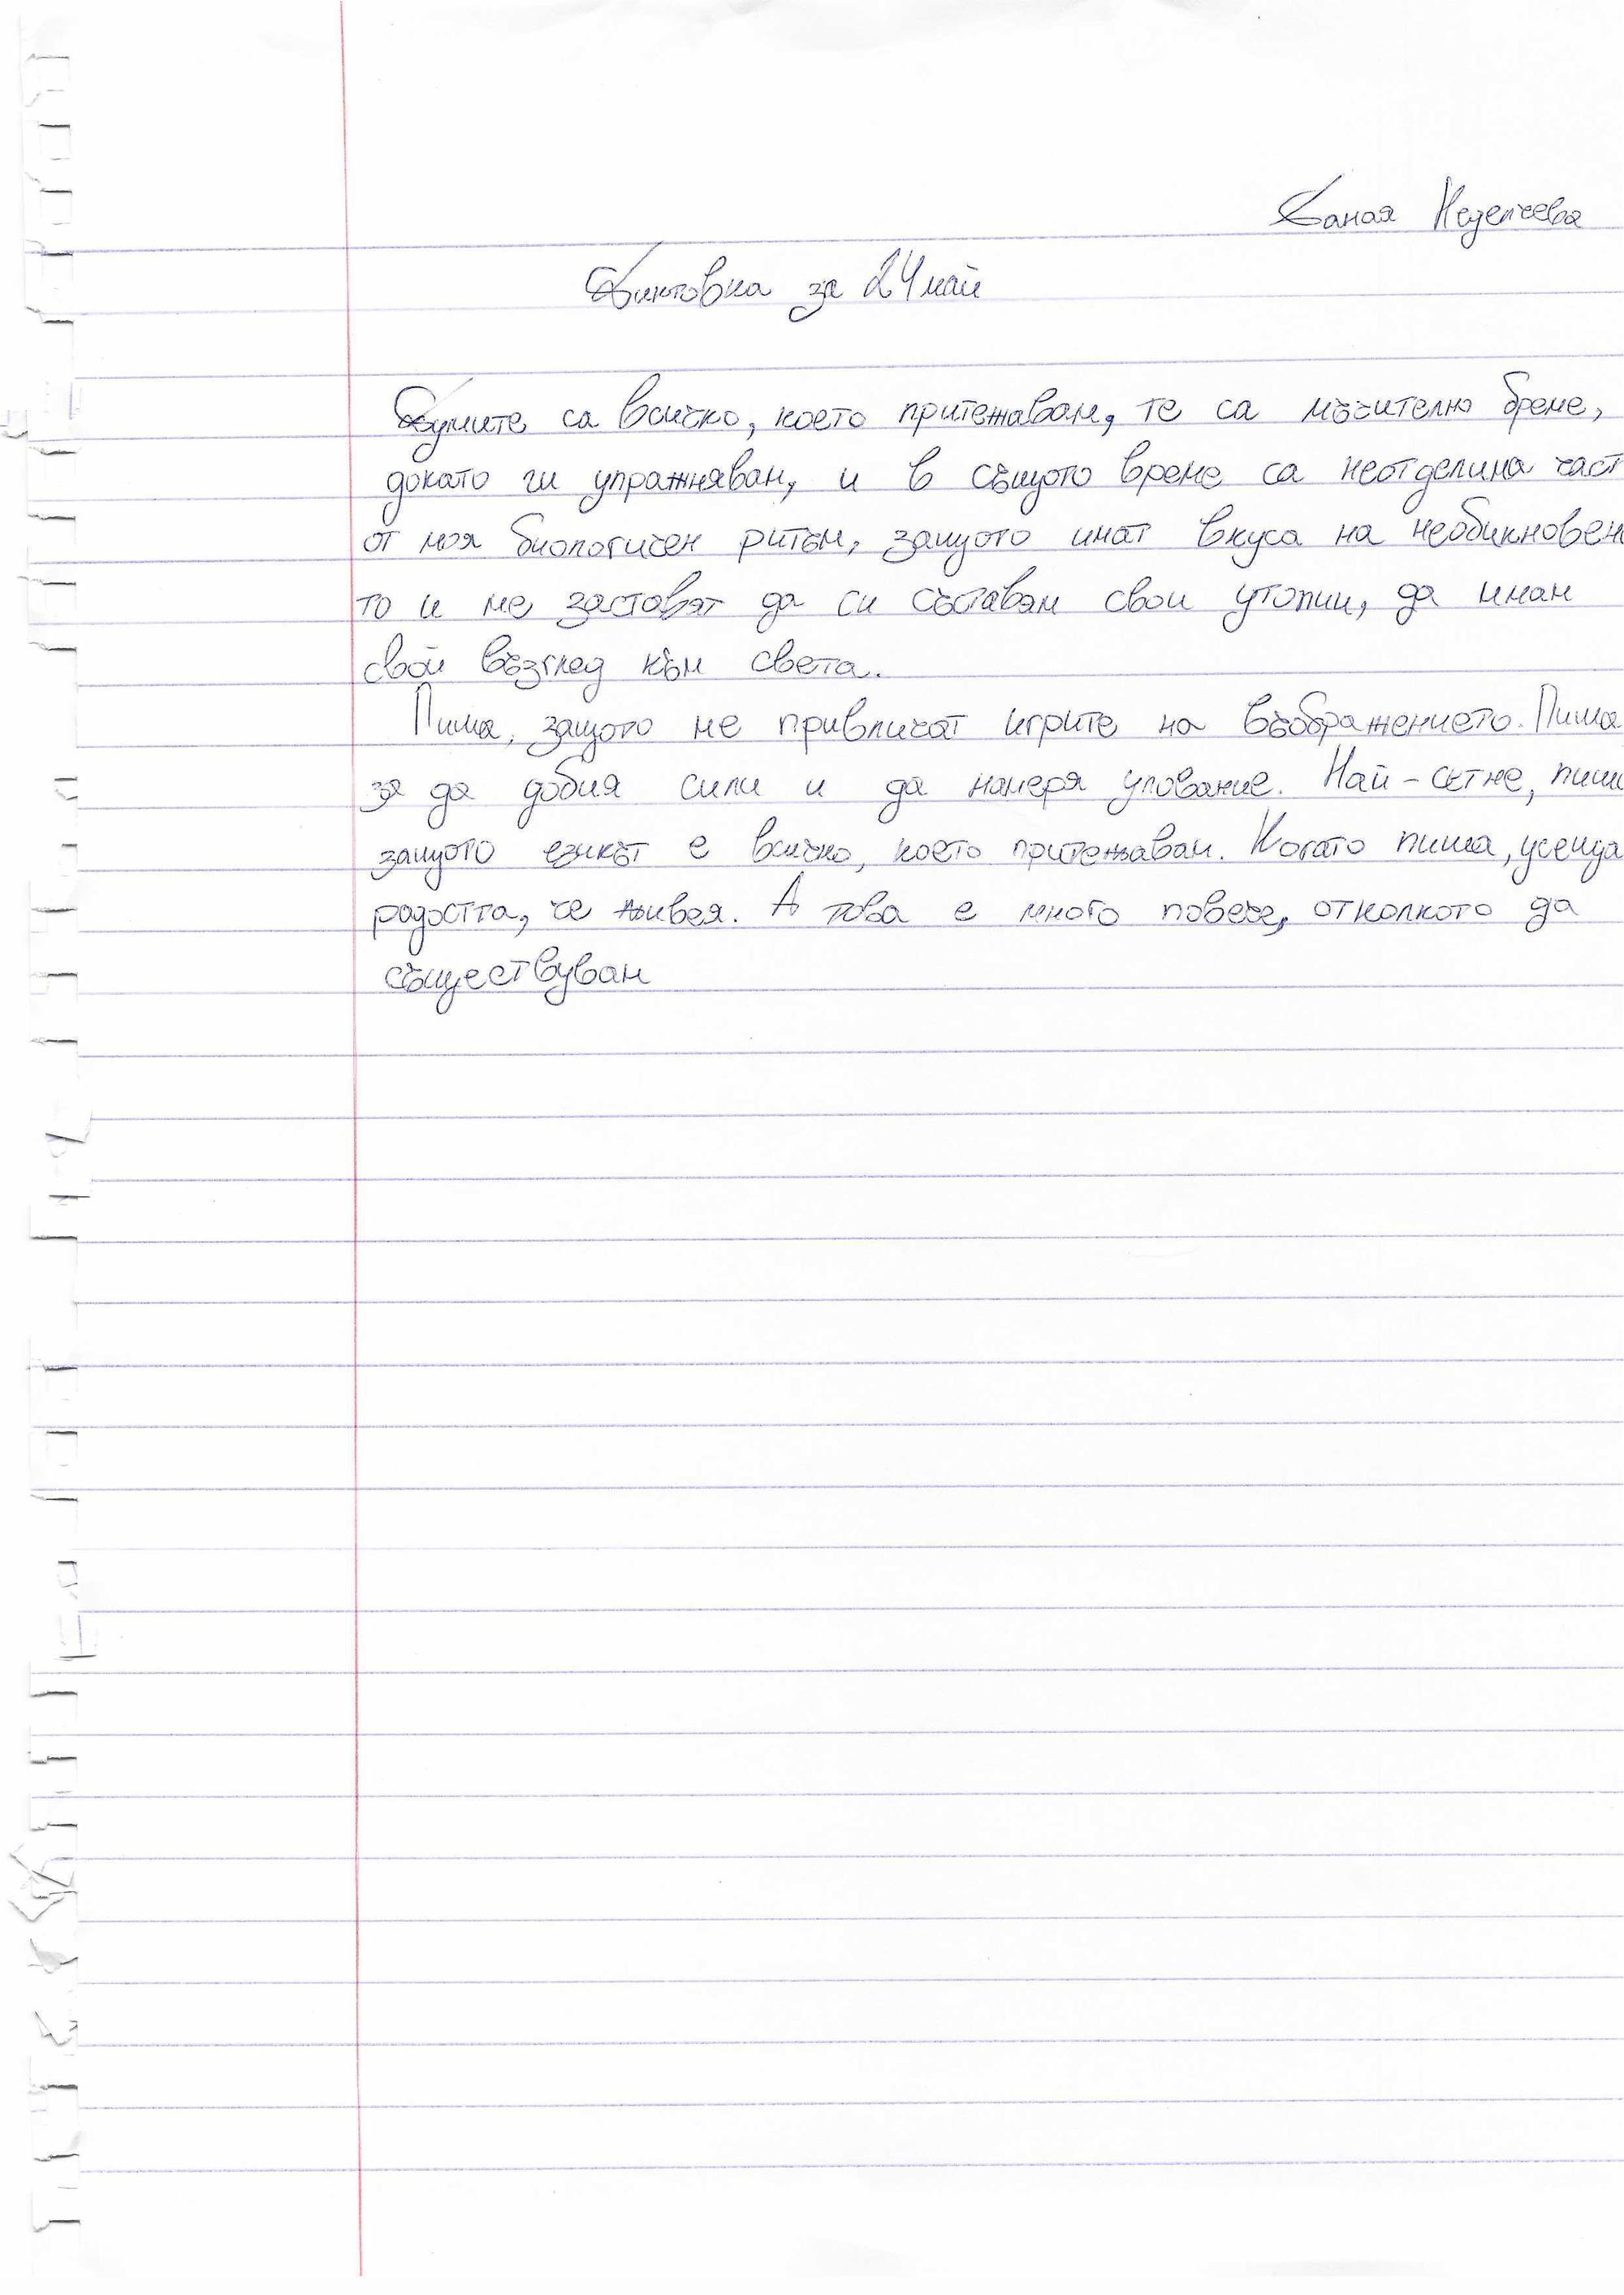 Даная Неделчева
Диктовка за 24 май
Думите са всичко, което притежавам, те са мъчително бреме,
докато ги упражнявам, и в същото време са неотделима част
от моя биологичен ритъм, защото имат вкуса на необикновено
то и ме заставят да си съставям свои утопии, да имам
свой възглед към света.
Пиша, защото ме привличат игрите на въображението. Пиша
за да добия сили и да намеря упование. Най-сетне, пиша
защото езикът е всичко, което притежавам. Когато пиша, усеща
радостта, че живея. А това е много повече, отколкото да
съществувам